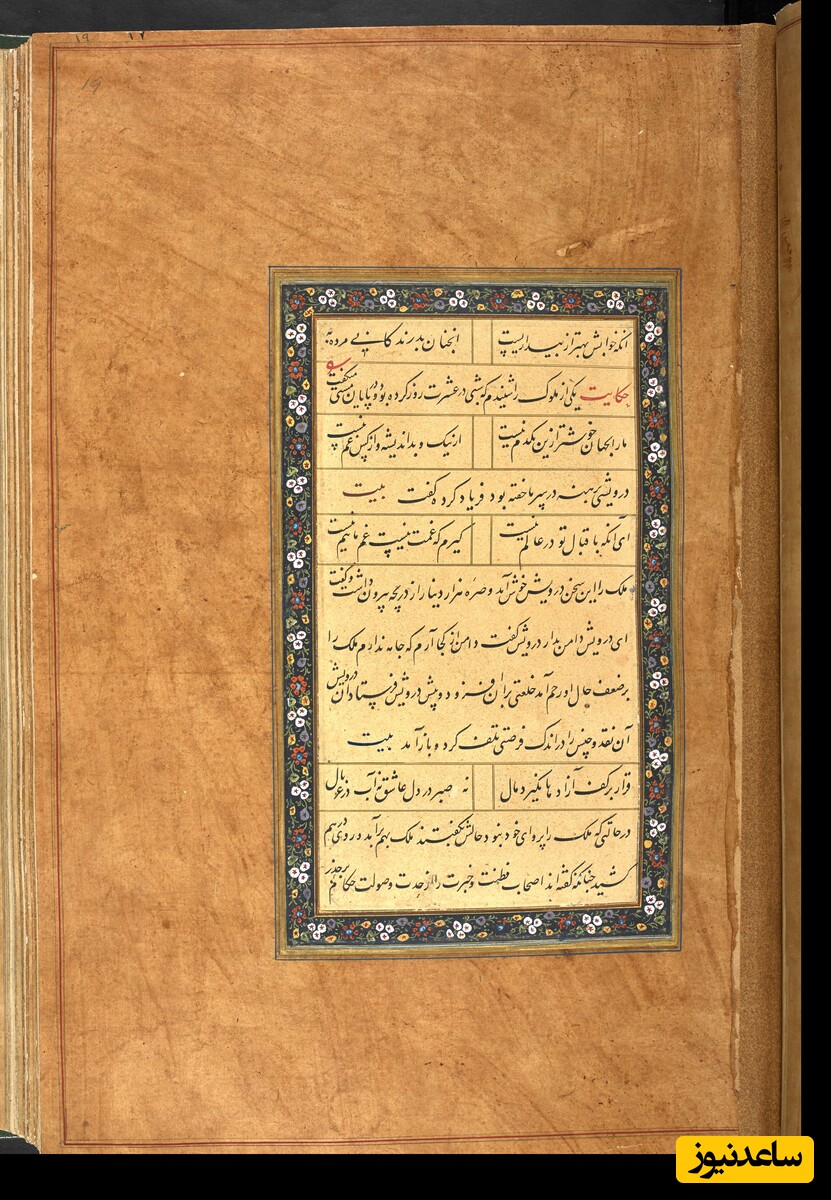 ١٩ ١٧
١٩
آنکه خوابش بهتر از بیداریست آنچنان بد زندگانی مرده به
حکایت یکی از ملوک را شنیدم که شبی در عشرت روز کرده بود و در پایان مستی میگفت
ما را بجهان خوشتر ازین یکدم نیست از نیک و بد اندیشه و از کس غم نیست
درویشی برهنه در سرما خفته بود فریاد کرد و گفت بیت
ای آنکه باقبال تو در عالم نیست گیرم که غمت نیست غم ما هم نیست
ملک را این سخن درویش خوش آمد و صره هزار دینار از دریچه بیرون داشت و گفت
ای درویش دامن بدار درویش گفت دامن از کجا آرم که جامه ندارم ملک را
بر ضعف حال او رحم آمد خلعتی بران فزود و پیش درویش فرستاد آن درویش
آن نقد و جنس را در اندک فرصتی تلف کرد و باز آمد بیت
قرار بر کف آزادها نگیرد مال نه صبر در دل عاشق نه آب در غربال
در حالتی که ملک را پروای خود نبود حالش گفتند ملک بهم برآمد و روی درهم
کشید چنانکه گفته‌اند اصحاب فطنت و خبرت را از حدت و صولت حکام بر حذر
ساعدنیوز